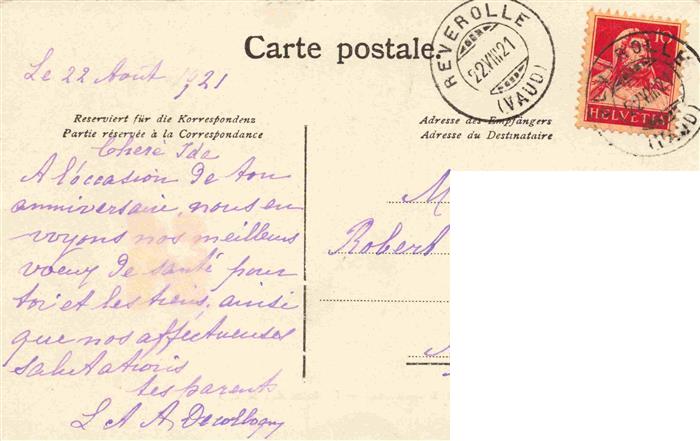 Carte postale.
Le 22 Août 1921
REVEROLLE
22 VIII 21
(VAUD)
10
HELVETIA
REVEROLLE
22 VIII 21
(VAUD)
Reserviert für die Korrespondenz
Partie réservée à la Correspondance
Adresse des Empfängers
Adresse du Destinataire
Cherè Ida
A l'occasion de ton
anniversaire, nous en
voyons nos meilleurs
voeux de santé pour
toi et les tiens, ainsi
que nos affectueuses
salutations
tes parents
L et A
M
Robert